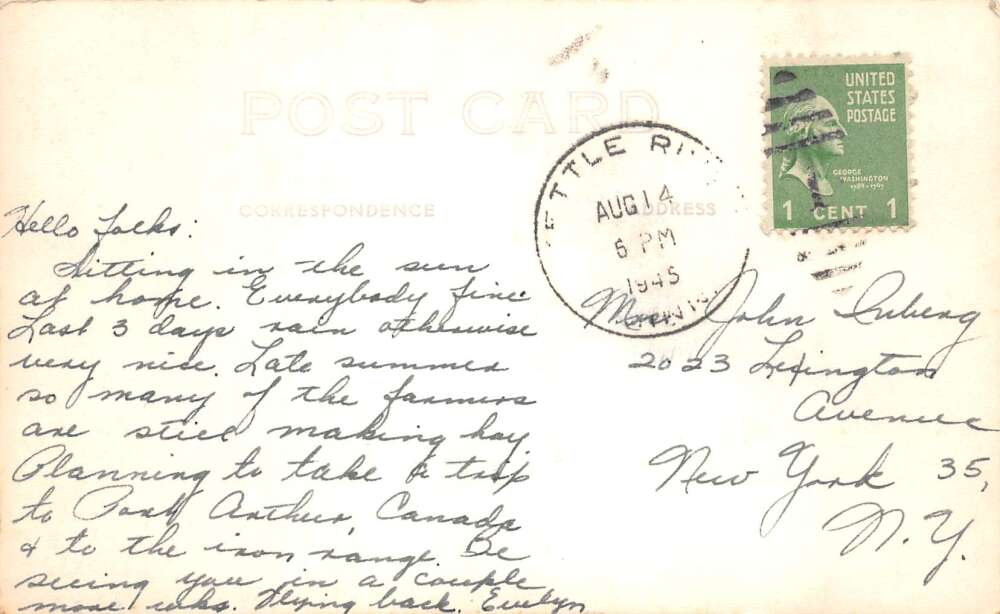 POST CARD
CORRESPONDENCE
ADDRESS
ETTLE RIV
AUG 14
6 PM
1945
MINN.
UNITED
STATES
POSTAGE
GEORGE
WASHINGTON
1789-1797
1 CENT 1
Hello folks:
Sitting in the sun
at home. Everybody fine.
Last 3 days rain otherwise
very nice. Late summer
so many of the farmers
are still making hay
Planning to take a trip
to Port Arthur, Canada
& to the iron range. Be
seeing you in a couple
more wks. Flying back. Evelyn
John Inberg
2023 Lexington
Avenue
New York 35,
N.Y.